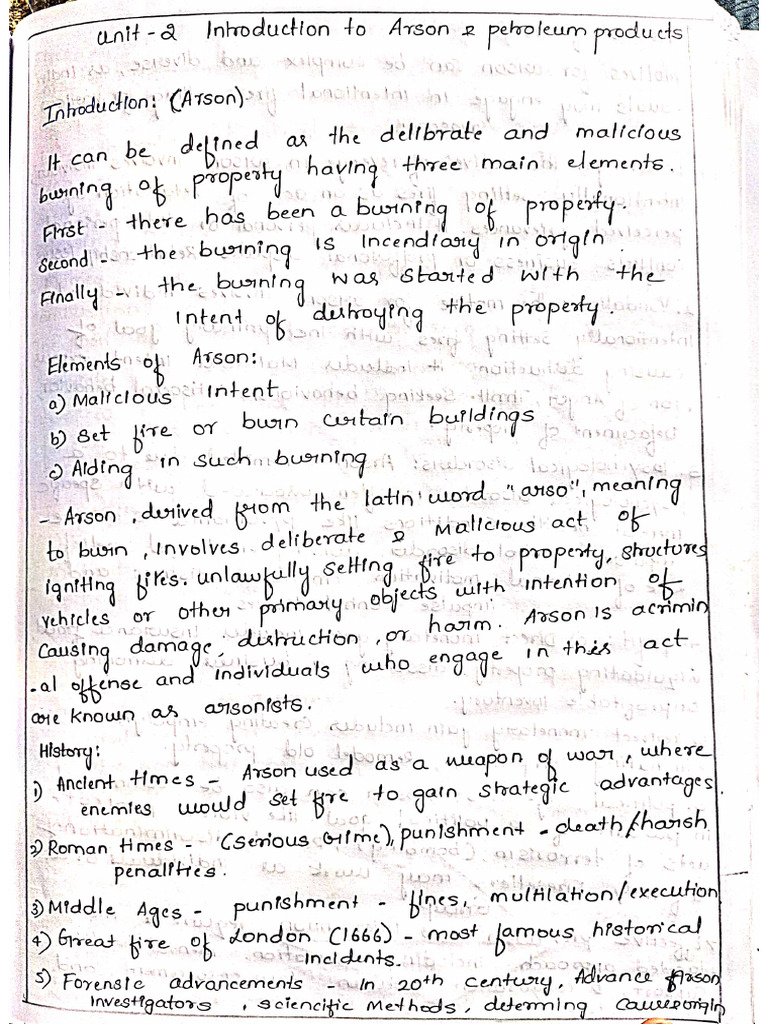 Unit-2 Introduction to Arson & petroleum products
Introduction: (Arson)
It can be defined as the delibrate and malicious
burning of property having three main elements.
First - there has been a burning of property.
Second - the burning is Incendiary in origin.
Finally - the burning was started with the
Intent of dustroying the property.
Elements of Arson:
a) Malicious Intent
b) Set fire or burn curtain buildings
c) Aiding in such burning
- Arson, derived from the latin word "arso", meaning
to burn, involves deliberate & Malicious act of
igniting fires. unlawfully setting fire to property, structures
vehicles or other primary objects with intention of
causing damage, distruction, or harm. Arson is a crimin
-al offense and individuals who engage in this act
are known as arsonists.
History:
1) Ancient times - Arson used as a weapon of war, where
enemies would set fire to gain strategic advantages.
2) Roman times - (serious crime), punishment - death/harsh
penalities.
3) Middle Ages - punishment - fines, multilation/execution
4) Great fire of London (1666) - most famous historical
incidents.
5) Forensic advancements - In 20th century, Advance Arson
investigators, sciencific Methods, determing cause origin